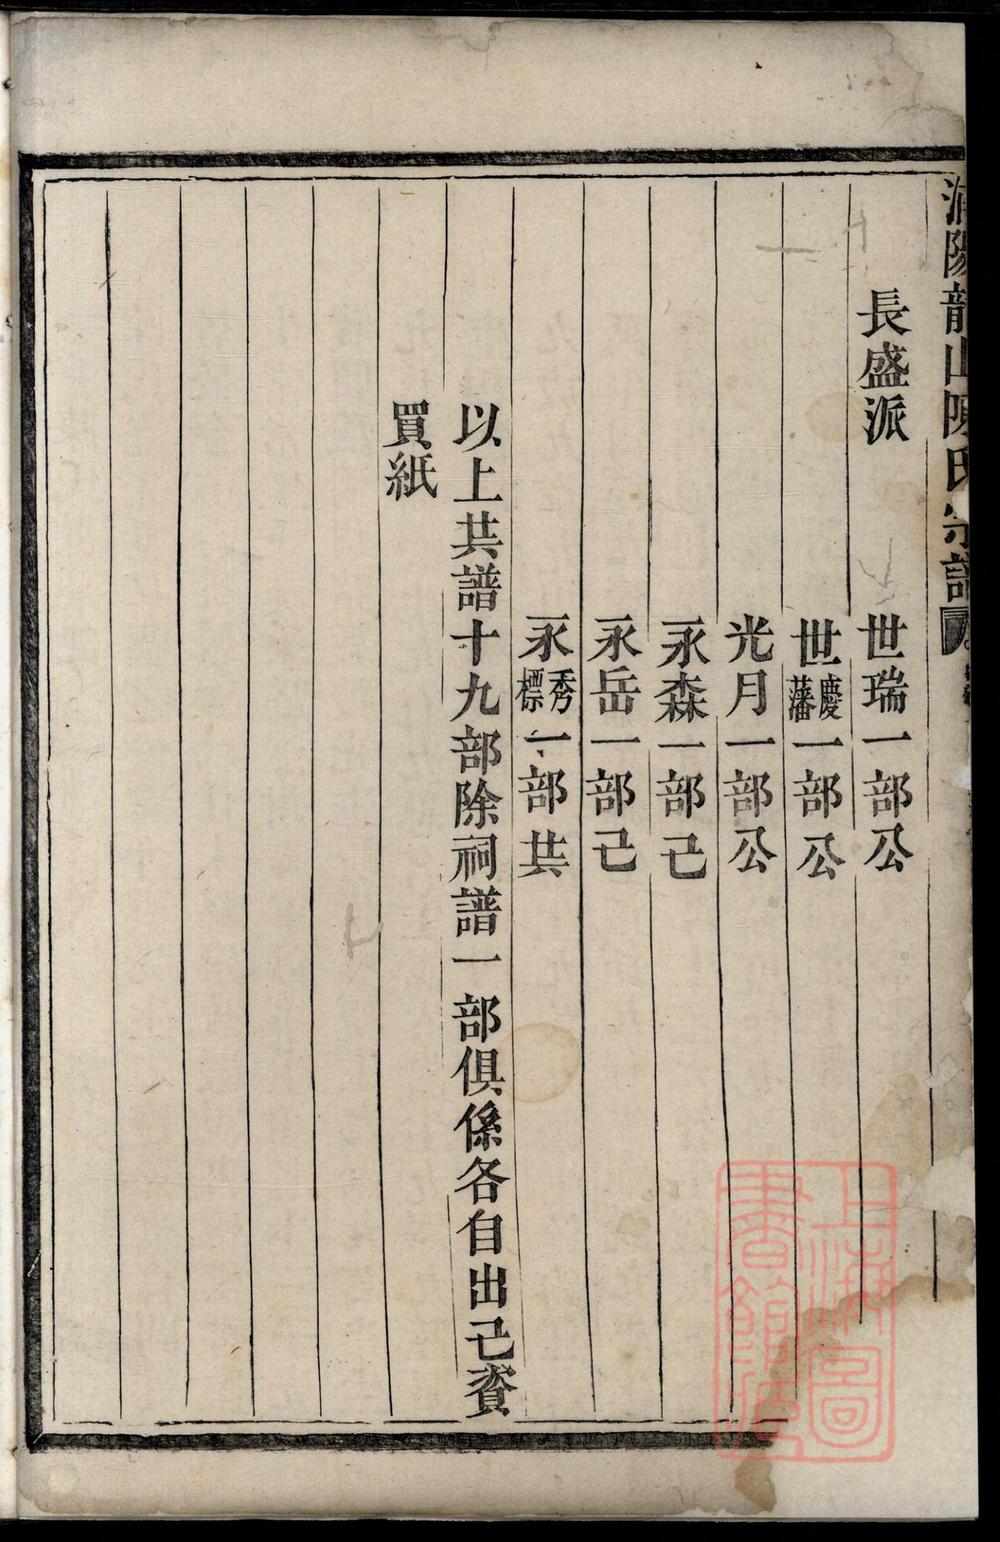 浦陽龍山陳氏宗譜
長盛派
世瑞一部公
世慶藩一部公
光月一部公
永森一部己
永岳一部己
永秀標一部共
以上共譜十九部除祠譜一部俱係各自出己資
買紙
上海圖
書館藏